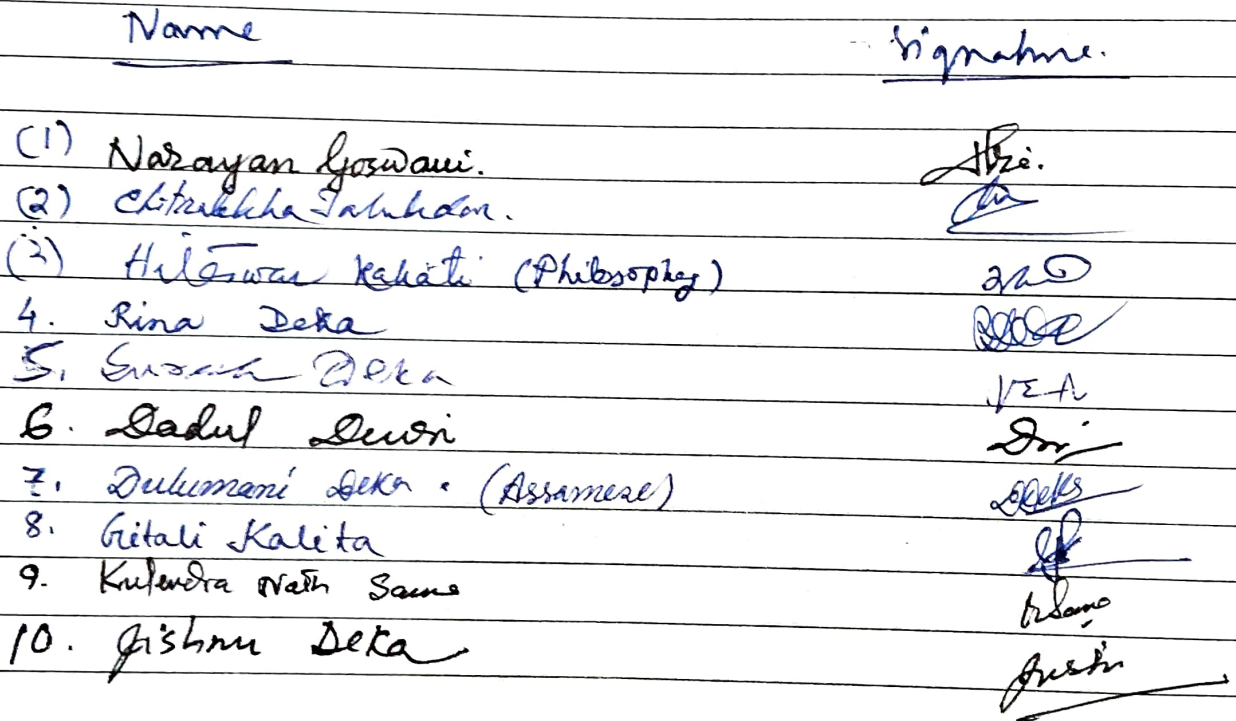 Name Signature.
(1) Narayan Goswami.
(2) Chitralekha Talukdar.
(3) Hiteswar Kakati (Philosophy)
4. Rina Deka
5. Suresh Deka
6. Dadul Dewri
7. Dulumani Deka. (Assamese) DDeka
8. Gitali Kalita
9. Kulendra Nath
10. Jishnu Deka